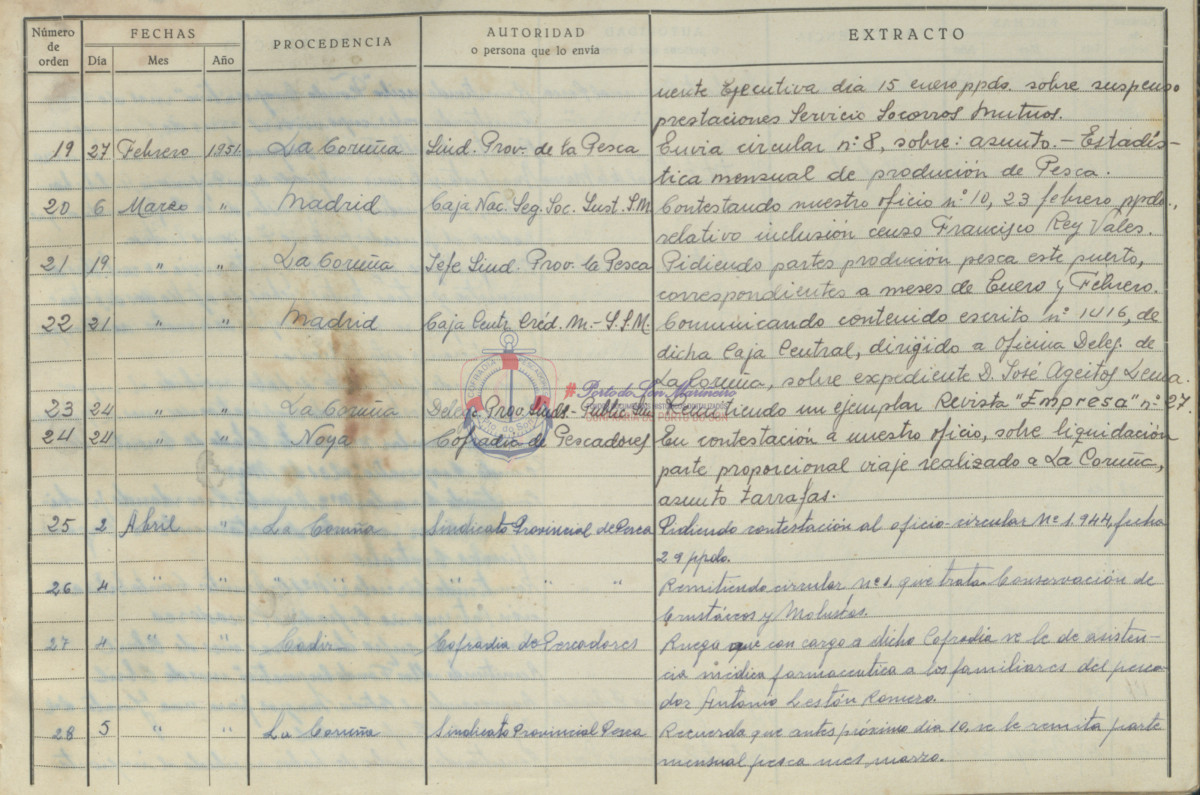 Número de orden FECHAS PROCEDENCIA AUTORIDAD o persona que lo envía EXTRACTO
Día Mes Año
nente Ejecutiva dia 15 enero ppdo. sobre suspenso
prestaciones Servicio Socorros Mutuos.
19 27 Febrero 1.951. La Coruña Sind. Prov. de la Pesca Envia circular nº 8, sobre: asunto.- Estadís-
tica mensual de produción de Pesca.
20 6 Marzo " Madrid Caja Nac. Seg. Soc. Sust. S.M. Contestando nuestro oficio nº 10, 23 febrero ppdo.,
relativo inclusión censo Francisco Rey Vales.
21 19 " " La Coruña Jefe Sind. Prov. la Pesca Pidiendo partes produción pesca este puerto,
correspondientes a meses de Enero y Febrero.
22 21 " " Madrid Caja Centr. Créd. M.- S.S.M. Comunicando contenido escrito nº 1416, de
dicha Caja Central, dirigido a Oficina Deleg. de
La Coruña, sobre expediente D. José Ageitos Lema.
23 24 " " La Coruña Deleg. Prov. Sinds.- Public. Remitiendo un ejemplar Revista "Empresa" nº 27.
24 24 " " Noya Cofradia de Pescadores En contestación a nuestro oficio, sobre liquidación
parte proporcional viaje realizado a La Coruña,
asunto tarrafas.
25 2 Abril " La Coruña Sindicato Provincial de Pesca Pidiendo contestación al oficio-circular Nº 1.944 fecha
29 ppdo.
26 4 " " " " " " " Remitiendo circular Nº 1. que trata Conservación de
Crustáceos y Moluscos.
27 4 " " Cadiz Cofradia de Pescadores Ruega que con cargo a dicho Cofradia se le de asisten-
cia médica farmaceutica a los familiares del pesca-
dor Antonio Lestón Romero.
28 5 " " La Coruña Sindicato Provincial Pesca Recuerda que antes próximo dia 10, se le remita parte
mensual pesca mes marzo.
# Porto do Son Marineiro